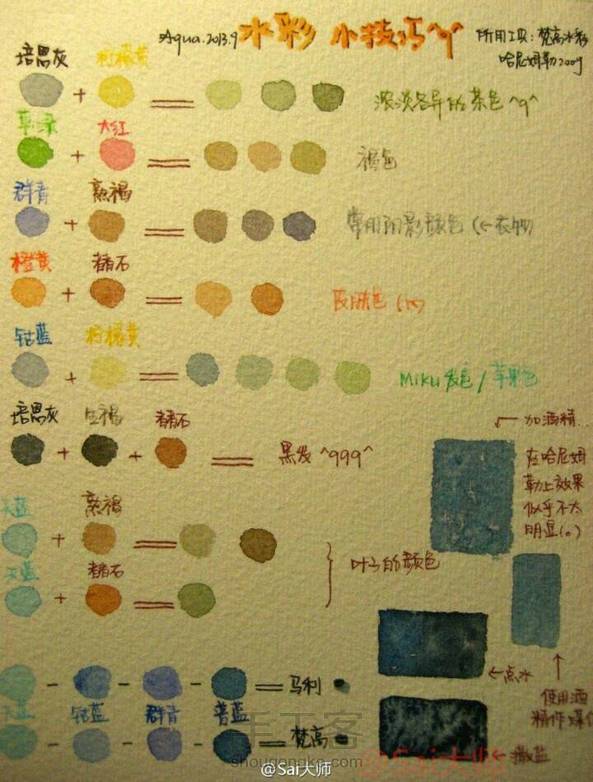 Aqua.2013.9 水彩 小技巧 所用工具:梵高水彩
哈尼姆勒200g
培恩灰 柠檬黄
+ = 浓淡各异的茶色^q^
草绿 大红
+ = 褐色
群青 熟褐
+ = 常用阴影颜色(←衣物)
橙黄 赭石
+ = 皮肤色
钴蓝 柠檬黄
+ = MIKU发色/苹果色
培恩灰 生褐 赭石
+ + = 黑发^qqq^
天蓝 熟褐
+ =
天蓝 赭石
+ =
叶子的颜色
←加酒精..
在哈尼姆
勒上效果
似乎不太
明显(。)
←点水
↑
使用酒
精作媒介
←撒盐
- - - = 马利
天蓝 钴蓝 群青 普蓝
- - - = 梵高
手工客
shougongke.com
@Sai大师
@Sai大师